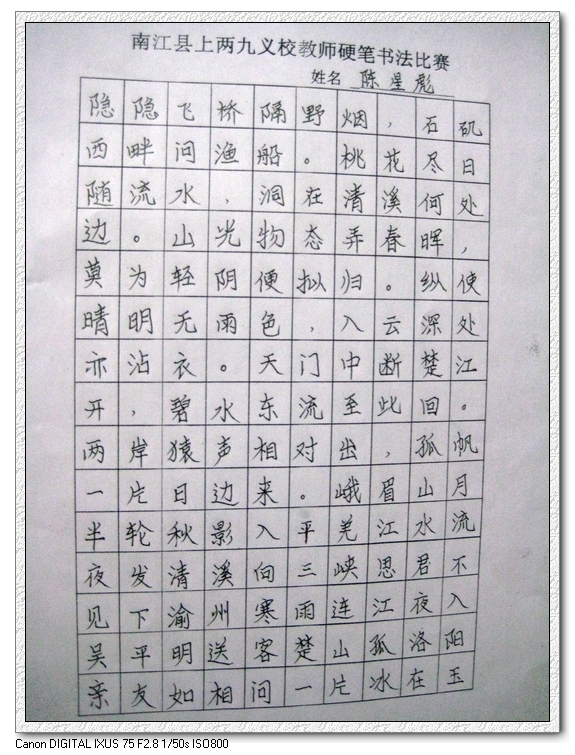 南江县上两九义校教师硬笔书法比赛
姓名 陈星彪
隐隐飞桥隔野烟,石矶
西畔问渔船。桃花尽日
随流水,洞在清溪何处
边。山光物态弄春晖,
莫为轻阴便拟归。纵使
晴明无雨色,入云深处
亦沾衣。天门中断楚江
开,碧水东流至此回。
两岸猿声相对出,孤帆
一片日边来。峨眉山月
半轮秋影入平羌江水流
夜发清溪向三峡思君不
见下渝州寒雨连江夜入
吴平明送客楚山孤洛阳
亲友如相问一片冰在玉
Canon DIGITAL IXUS 75 F2.8 1/50s ISO800